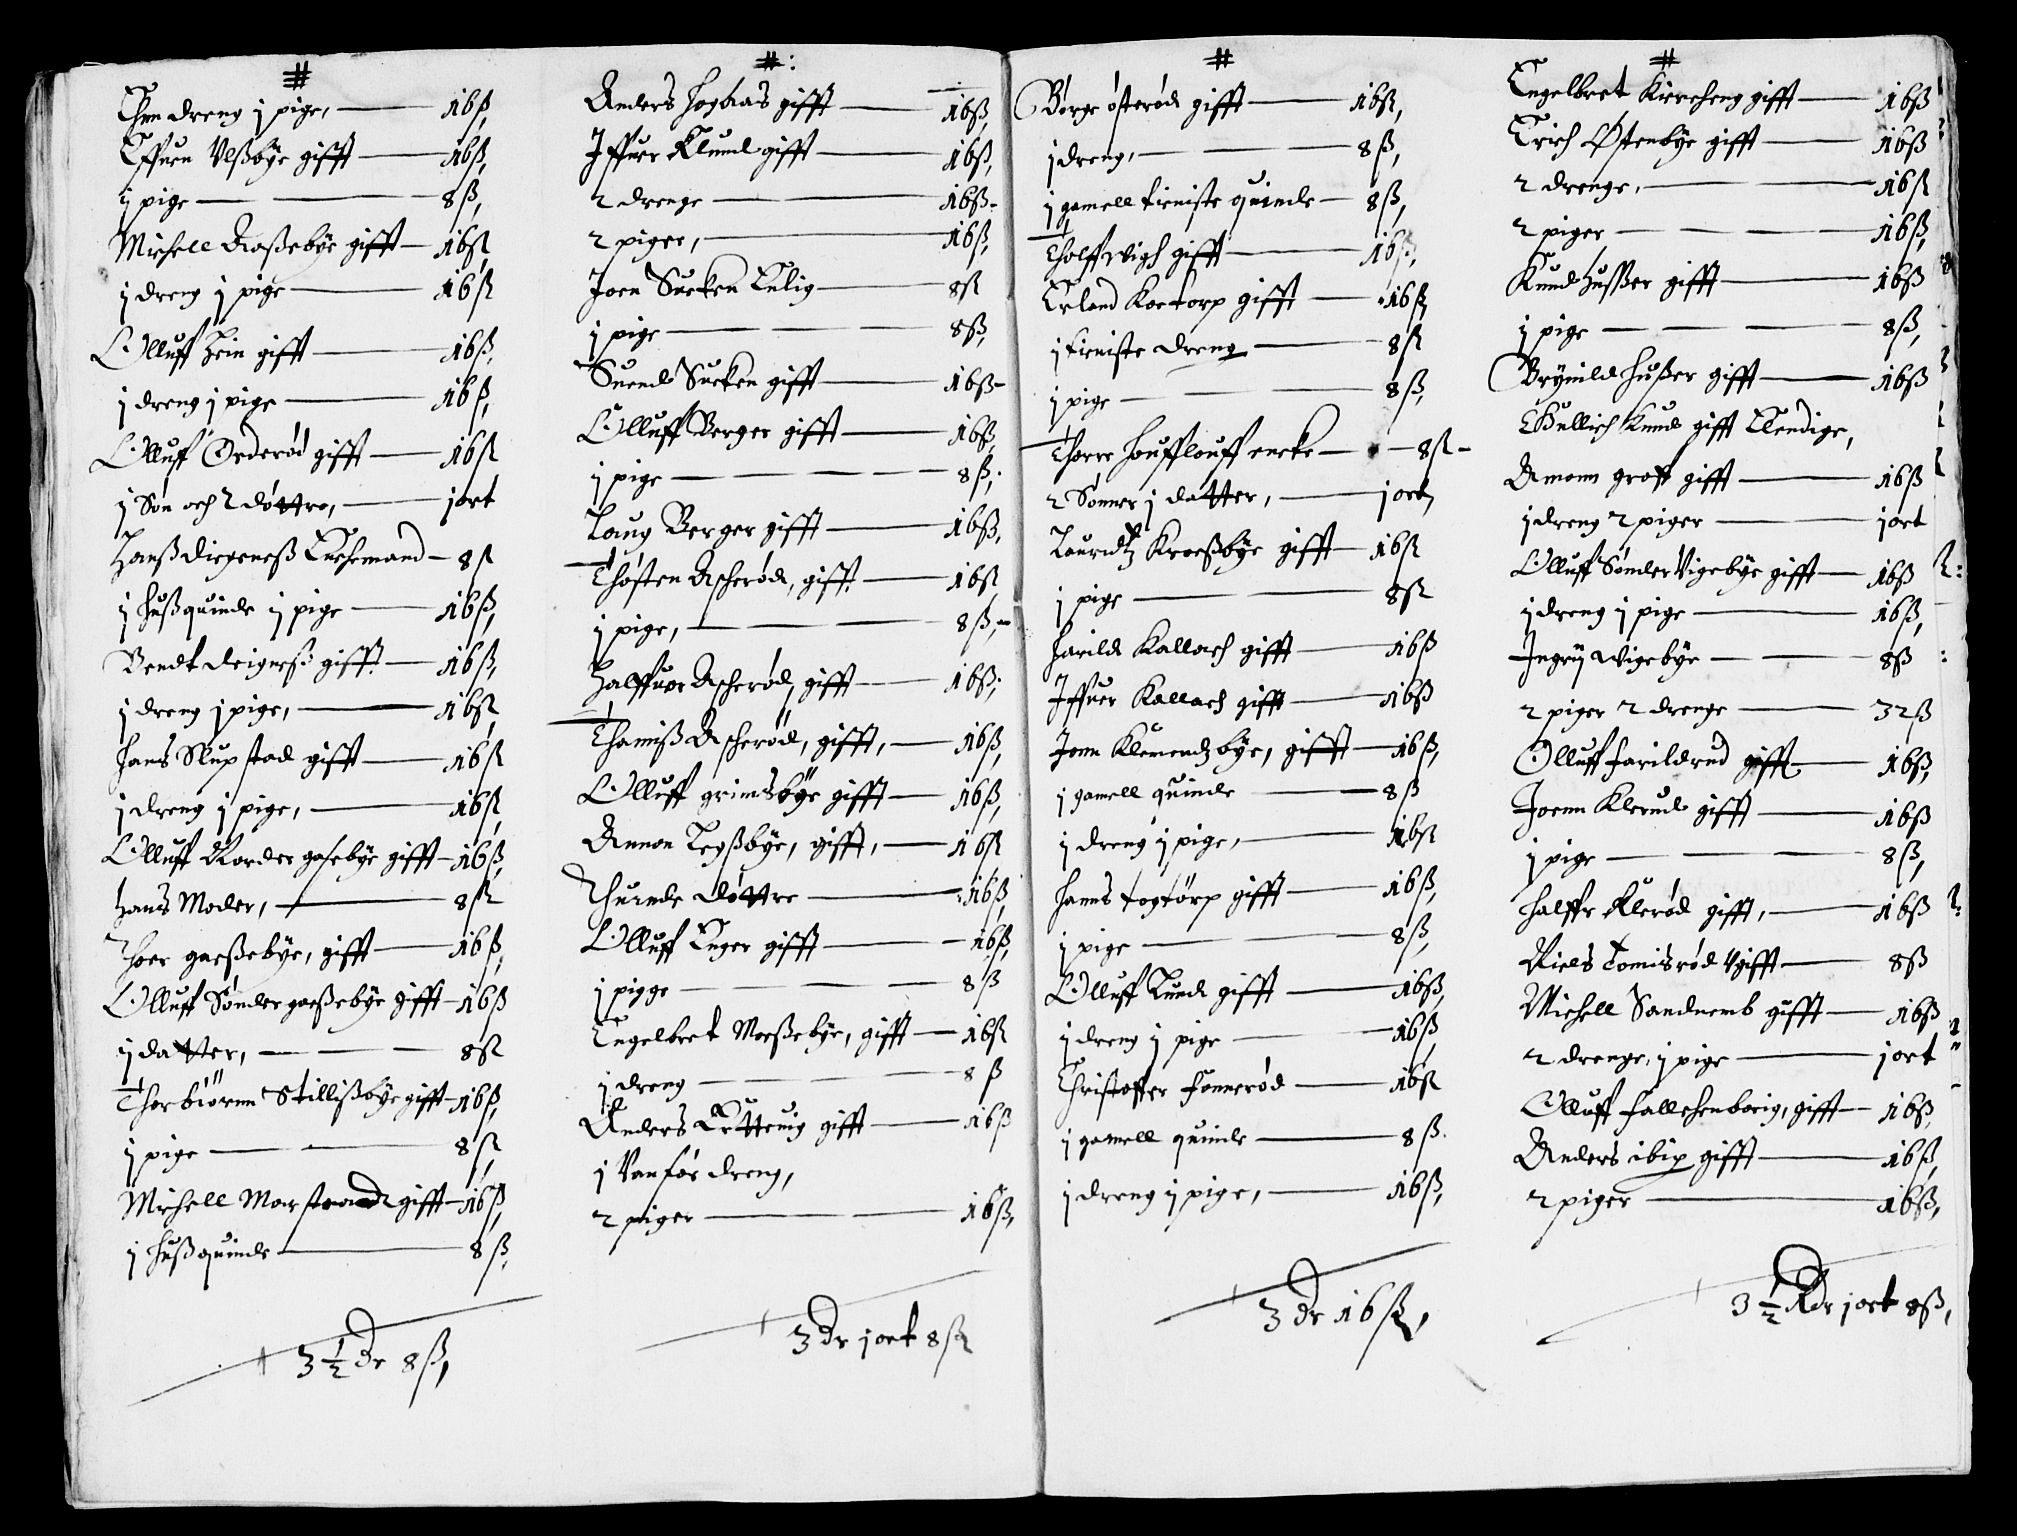 #
Thm dreng j pige, 16ß,
Effuen Ulßbÿe gifft 16ß,
j pige 8ß,
Michell Raßebÿe gifft 16ß
j dreng j pige 16ß
Olluff Hein gifft 16ß,
j dreng j pige 16ß,
Olluff Orderød gifft 16ß
j Søn och 2 døttre, jort
Hanß diegeneß Enchemand 8ß
j hußquinde j pige 16ß,
Bendt deigneß gifft 16ß,
j dreng j pige, 16ß,
Hans Slupstad gifft 16ß
j dreng j pige, 16ß,
Olluff Norder gasebÿe gifft 16ß,
Hans Moder, 8ß
Thoer gaeßebÿe, gifft 16ß,
Olluff Sønder gaeßebÿe gifft 16ß
j datter, 8ß
Thorbiørnn Stillißbÿe gifft 16ß,
j pige 8ß,
Michell Marstrand gifft 16ß,
j hußquinde 8ß,
3 1/2 Dr 8ß,
#:
Anders Hogkas gifft 16ß,
Iffuer Klund gifft 16ß,
2 drenge 16ß
2 piger, 16ß,
Joen Sueken Enlig 8ß
j pige 8ß,
Suend Sueken gifft 16ß
Olluff Berger gifft 16ß,
j pige 8ß,
Laug Berger gifft 16ß,
Thøsten Ascherød, gifft 16ß
j pige, 8ß,
Halffuor Ascherød, gifft 16ß,
Thamiß Ascherød, gifft, 16ß,
Olluff grimsbÿe gifft 16ß,
Amon Tegßbÿe, gifft, 16ß
Thurnde døttre 16ß,
Olluff Enger gifft 16ß,
j pigge 8ß
Engelbret Moeßebÿe, gifft 16ß
j dreng 8ß
Anders Krttvig gifft 16ß
j Vanfør dreng,
2 piger 16ß,
3 Dr jort 8ß
#
Børge østerød gifft 16ß,
j dreng, 8ß,
j gamell tieniste quinde 8ß,
Tholff Wigh gifft 16ß,
Erland Kortorp gifft 16ß
j tieniste dreng 8ß
j pige 8ß,
Thorre Houfflouff encke 8ß
2 Sønner j datter, jort,
Lauridtz Kroeßbÿe gifft 16ß
j pige 8ß
Harild Kallach gifft 16ß
Iffuer Kallach gifft 16ß
Jonn Klemendz bÿe, gifft 16ß,
j gamell quinde 8ß
j dreng j pige, 16ß
Hanns togtørp gifft 16ß,
j pige 8ß,
Olluff Lund gifft 16ß,
j dreng j pige 16ß,
Christoffer Fonnerød 16ß
j gamell quinde 8ß
j dreng j pige, 16ß,
3 Dr 16ß,
#
Engelbret Kiercheng gifft 16ß
Erich Østenbÿe gifft 16ß
2 drenge, 16ß
2 piger 16ß,
Knud Hußer gifft 16ß
j pige 8ß,
Brÿnild Hußer gifft 16ß
Gullich Knud gifft Elendige,
Amon groff gifft 16ß
j dreng 2 piger jort
Olluff Sønder Vigebÿe gifft 16ß
j dreng j pige 16ß,
Ingrij Wigebÿe 8ß
2 piger 2 drenge 32ß
Olluff Farildrud gifft 16ß,
Joenn Klerud gifft 16ß
j pige 8ß,
Halffr Klerød gifft, 16ß
Niels Tomisrød Vgifft 8ß
Michell Sandnemb gifft 16ß
2 drenge, j pige jort
Olluff Fallchenborig, gifft 16ß,
Anders ibip gifft 16ß,
2 piger 16ß,
3 1/2 Rdr jort 8ß,